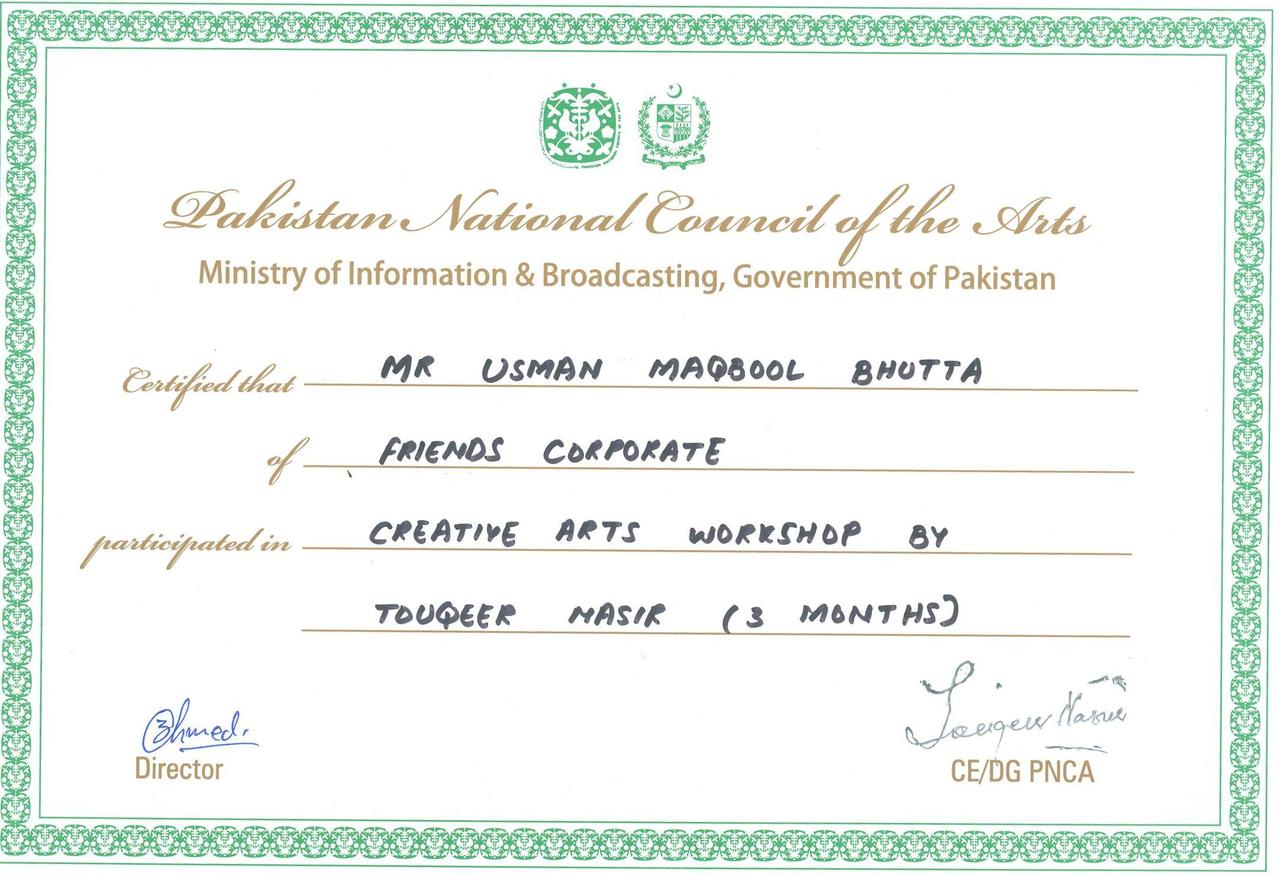 Pakistan National Council of the Arts
Ministry of Information & Broadcasting, Government of Pakistan
Certified that MR USMAN MAQBOOL BHUTTA
of FRIENDS CORPORATE
participated in CREATIVE ARTS WORKSHOP BY
TOUQEER NASIR (3 MONTHS)
Ahmed.
Touqeer Nasir
Director
CE/DG PNCA